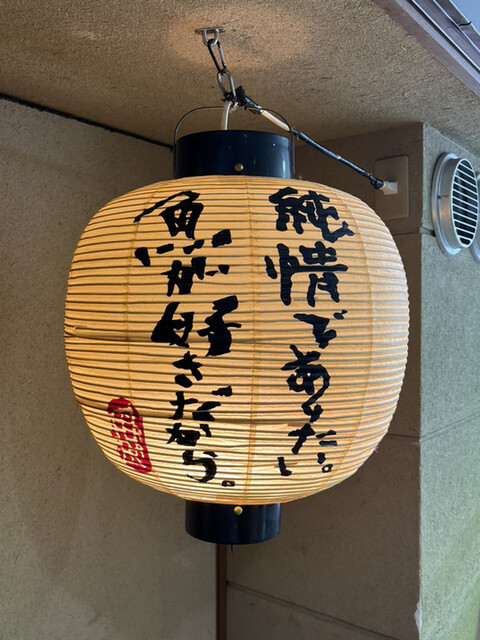 純情でありたい。
魚が好きだから。